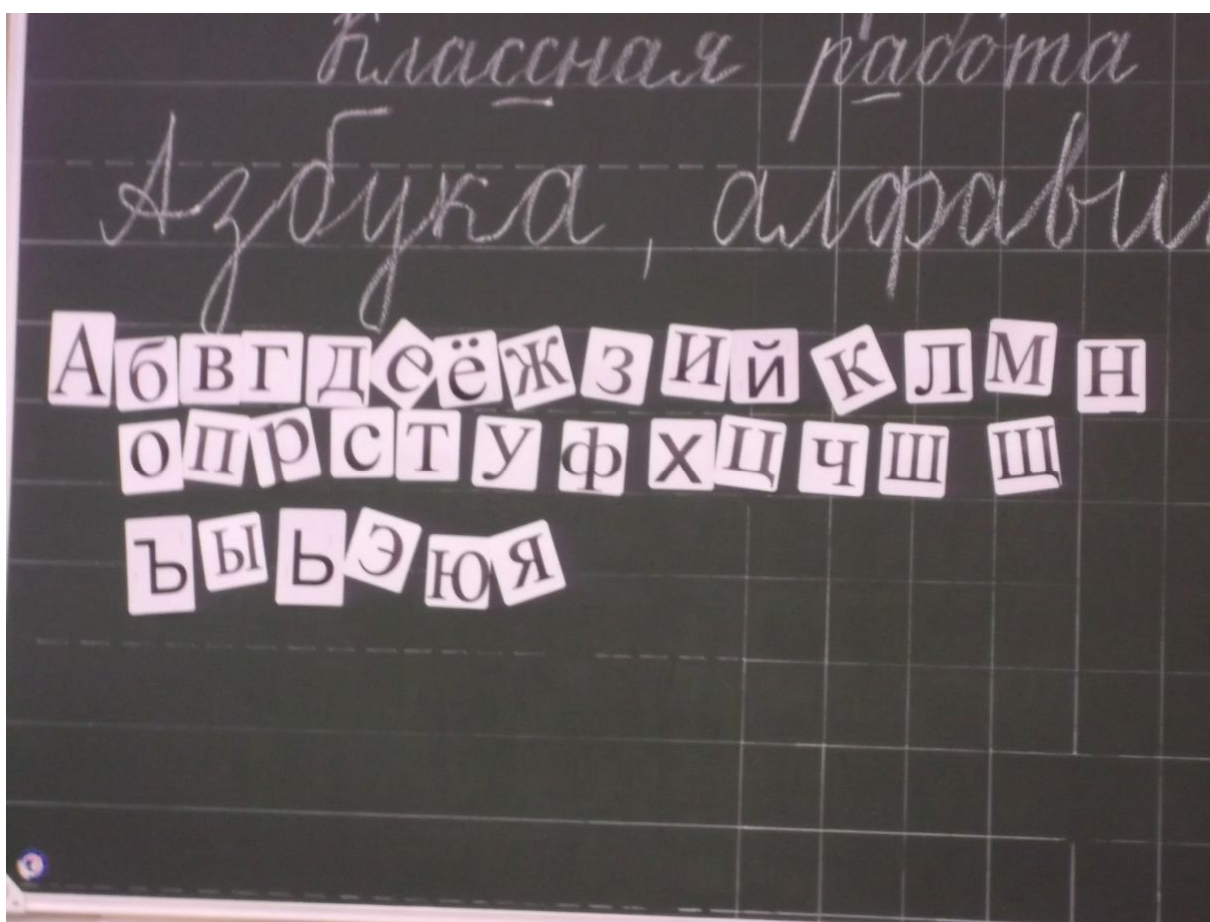 Классная работа
Азбука, алфави
А б в г д е ё ж з И й К Л М Н
о п р с т у ф х ц ч ш щ
ъ ы ь э ю я